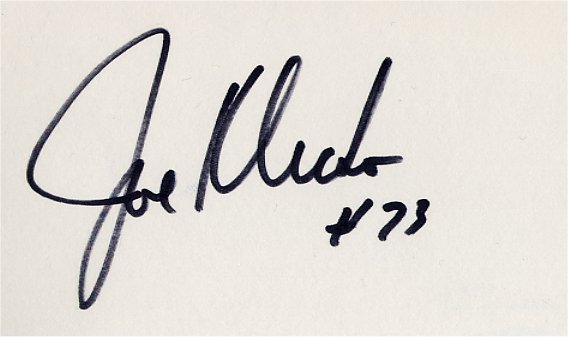 Joe Klecko
#73